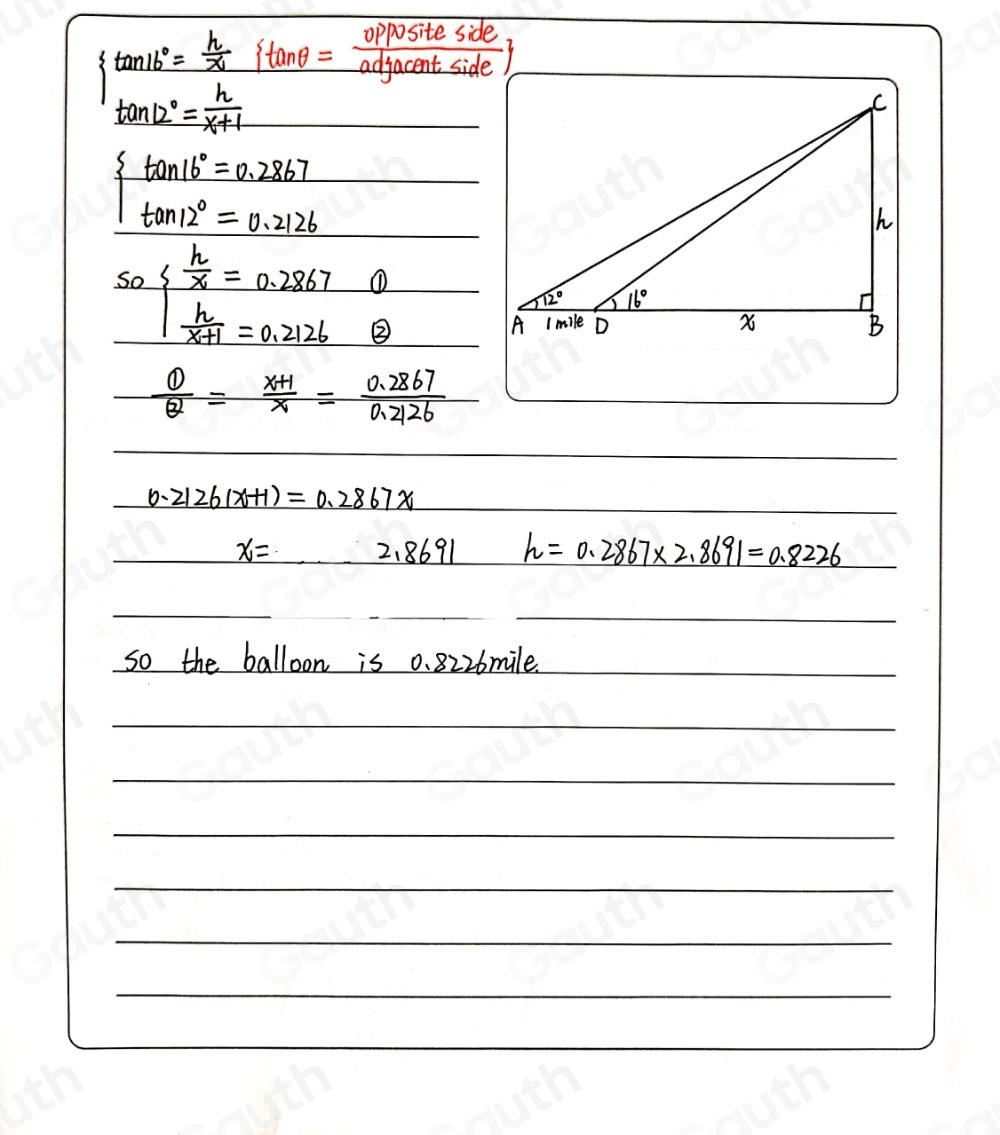 { tan16° = h/x {tanθ = opposite side / adjacent side}
tan12° = h/x+1
{ tan16° = 0.2867
tan12° = 0.2126
so { h/x = 0.2867 ①
h/x+1 = 0.2126 ②
①/② = x+1/x = 0.2867/0.2126
0.2126(x+1) = 0.2867x
x = 2.8691 h = 0.2867×2.8691=0.8226
so the balloon is 0.8226mile.
C
h
12° 16°
A 1 mile D x B
Gauth